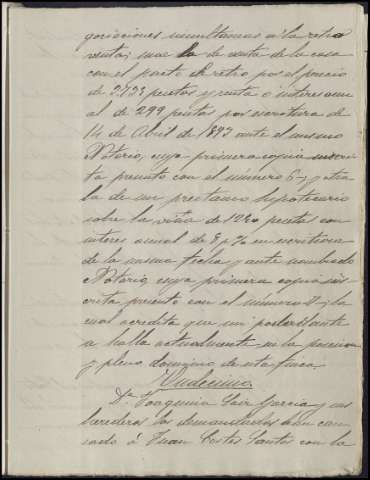 gociaciones simultaneas á la retro
venta, una la de venta de la casa
con el pacto de retro por el precio
de 3733 pesetas y renta ó interes anu
al de 299 pesetas por escritura de
14 de Abril de 1893 ante el mismo
Notario, cuya primera copia inscri
ta presento con el número 6 y otra
la de un prestamo hipotecario
sobre la viña de 1240 pesetas con
interes anual de 8 p% en escritura
de la misma fecha y ante nombrado
Notario, cuya primera copia ins
crita presento con el número 7 y la
cual acredita que mi poderdante
se halla actualmente en la posesion
y pleno dominio de esta finca.
Undecimo
Dª Joaquina García y sus
herederos los demandados han cau
sado á Juan Cortes Santos con la